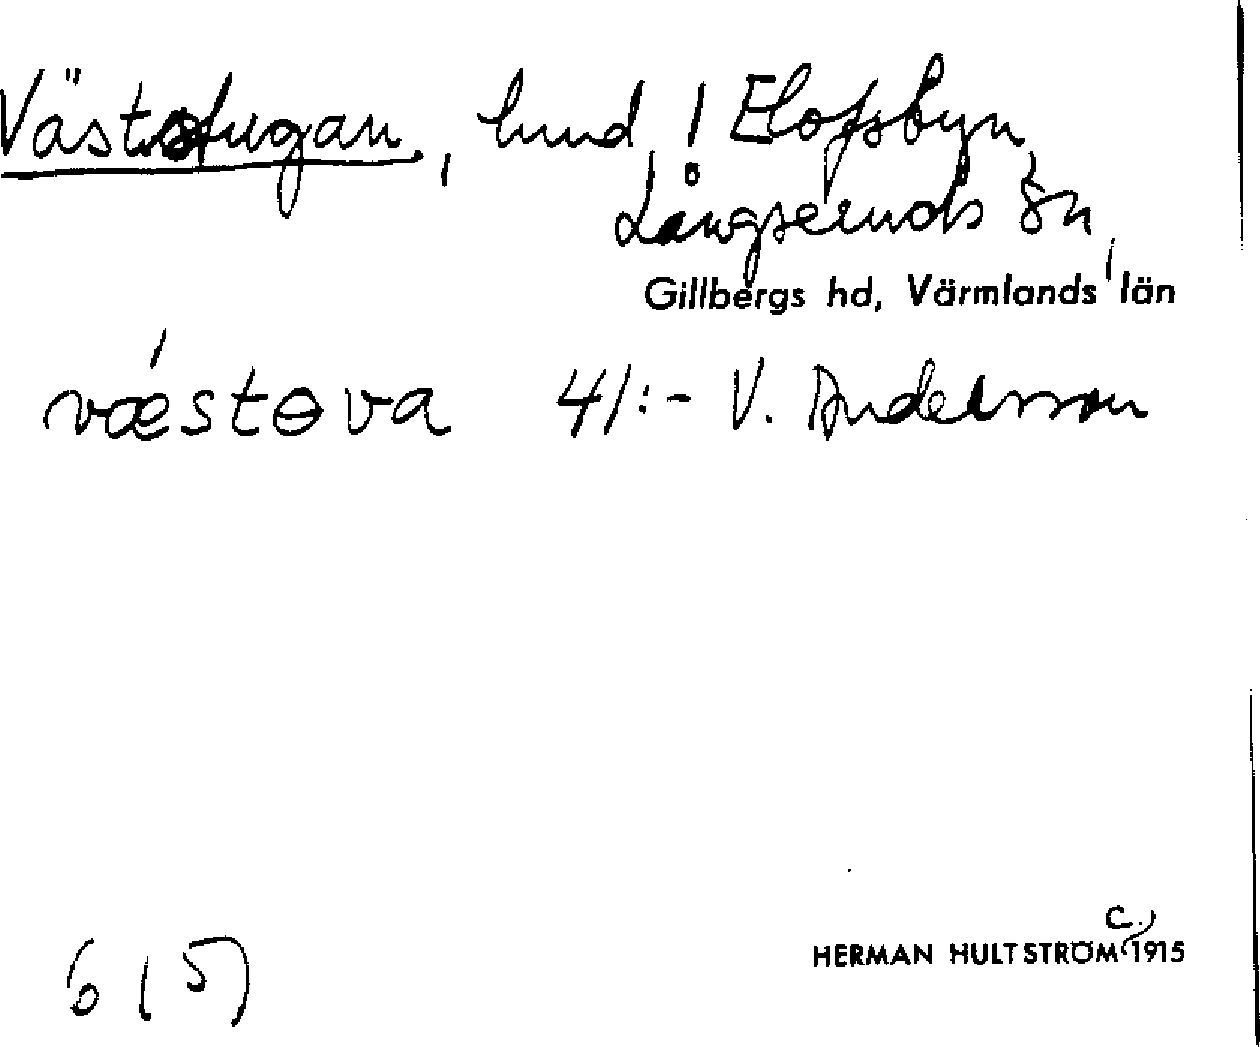 Väststugan, lund, ! Elofsbyn,
Långseruds sn,
Gillbergs hd, Värmlands län
væ´stɵva 41:- V. Andersson
c.)
HERMAN HULTSTRÖM 1915
6 (5)